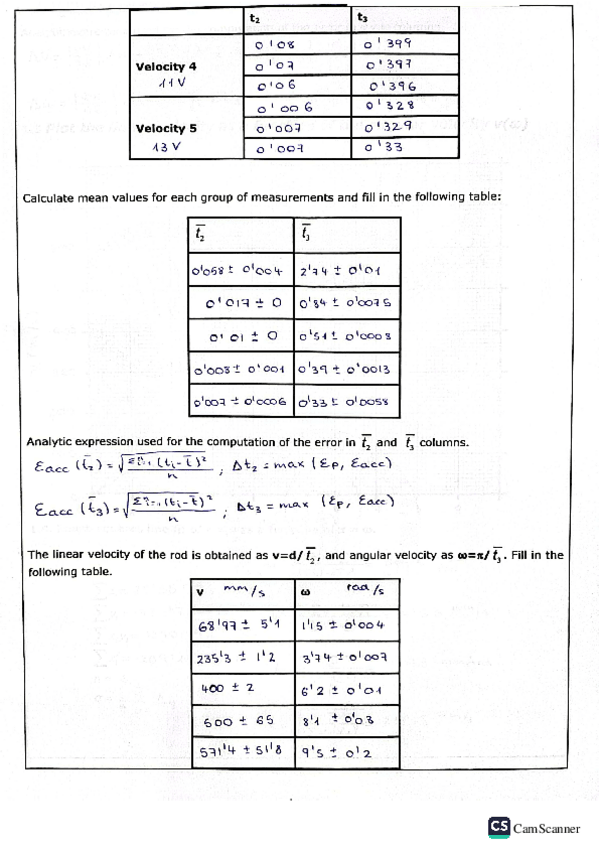 t₂ t₃
0'08 0'399
Velocity 4 0'07 0'397
11V 0'06 0'396
0'006 0'328
Velocity 5 0'007 0'329
13 V 0'007 0'33
Calculate mean values for each group of measurements and fill in the following table:
t̄₂ t̄₃
0'058 ± 0'004 2'74 ± 0'01
0'017 ± 0 0'84 ± 0'0075
0'01 ± 0 0'51 ± 0'0008
0'008 ± 0'001 0'39 ± 0'0013
0'007 ± 0'0006 0'33 ± 0'0058
Analytic expression used for the computation of the error in t̄₂ and t̄₃ columns.
Eacc (t̄₂) = √(Σⁿᵢ₌₁ (tᵢ-t̄)²/n) ; Δt₂ = max (Ep, Eacc)
Eacc (t̄₃) = √(Σⁿᵢ₌₁ (tᵢ-t̄)²/n) ; Δt₃ = max (Ep, Eacc)
The linear velocity of the rod is obtained as v=d/t̄₂, and angular velocity as ω=π/t̄₃. Fill in the
following table.
v mm/s ω rad/s
68'97 ± 5'1 1'15 ± 0'004
235'3 ± 1'2 3'74 ± 0'007
400 ± 2 6'2 ± 0'01
500 ± 65 8'1 ± 0'03
571'4 ± 51'8 9'5 ± 0'2
CS CamScanner